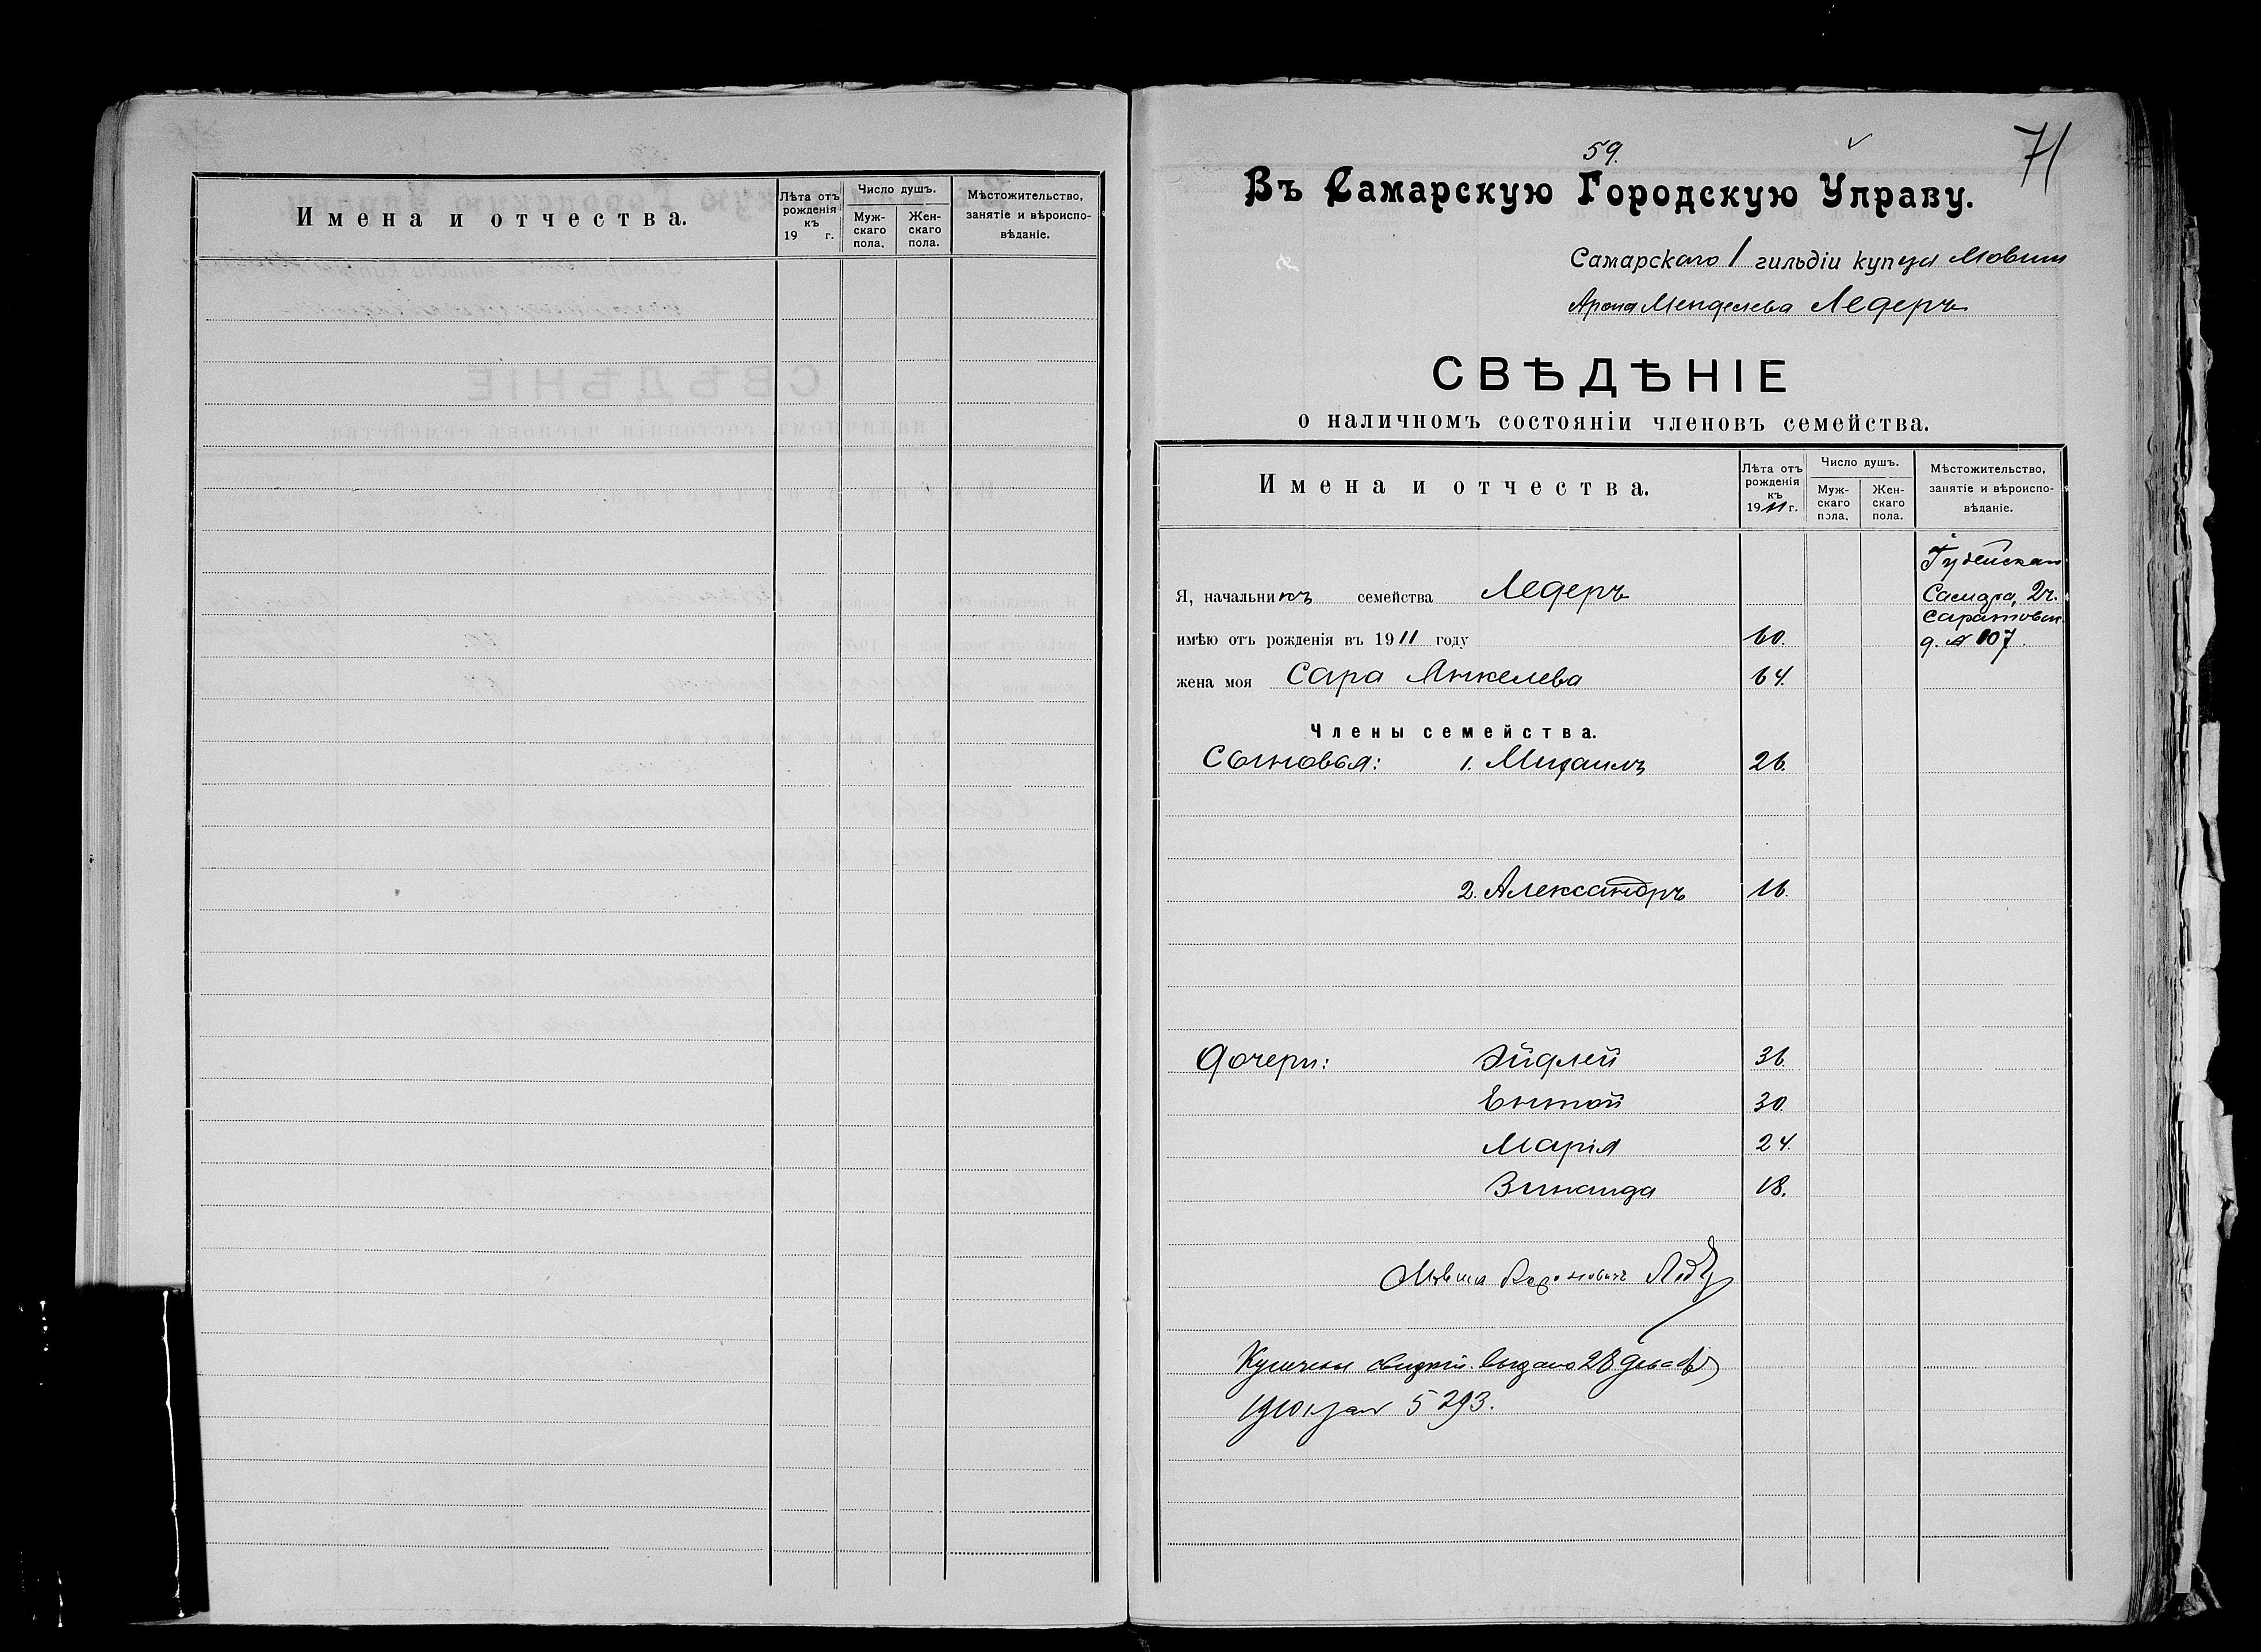 Имена и отчества.
Лѣта отъ рожденія къ 19 г.
Число душъ.
Мужскаго пола.
Женскаго пола.
Мѣстожительство, занятіе и вѣроисповѣданіе.
59.
71
Въ Самарскую Городскую Управу.
Самарскаго 1 гильдіи купца Мовши
Арона Менделева Ледеръ
СВѢДѢНІЕ
о наличномъ состояніи членовъ семейства.
Имена и отчества.
Лѣта отъ рожденія къ 1911 г.
Число душъ.
Мужскаго пола.
Женскаго пола.
Мѣстожительство, занятіе и вѣроисповѣданіе.
Я, начальникъ семейства Ледеръ
Іудейскаго
Самара, 2 ч.
Саратовск.
имѣю отъ рожденія въ 1911 году 60. д. № 107.
жена моя Сара Янкелева 64.
Члены семейства.
Сыновья: 1. Михаилъ 26.
2. Александръ 16.
Дочери: Эйдлей 36.
Ентой 30.
Марія 24.
Зинаида 18.
Мовша Ароновичъ
Купеческ. свидѣт. выдано 28 декабря
1910 г. за № 5293.